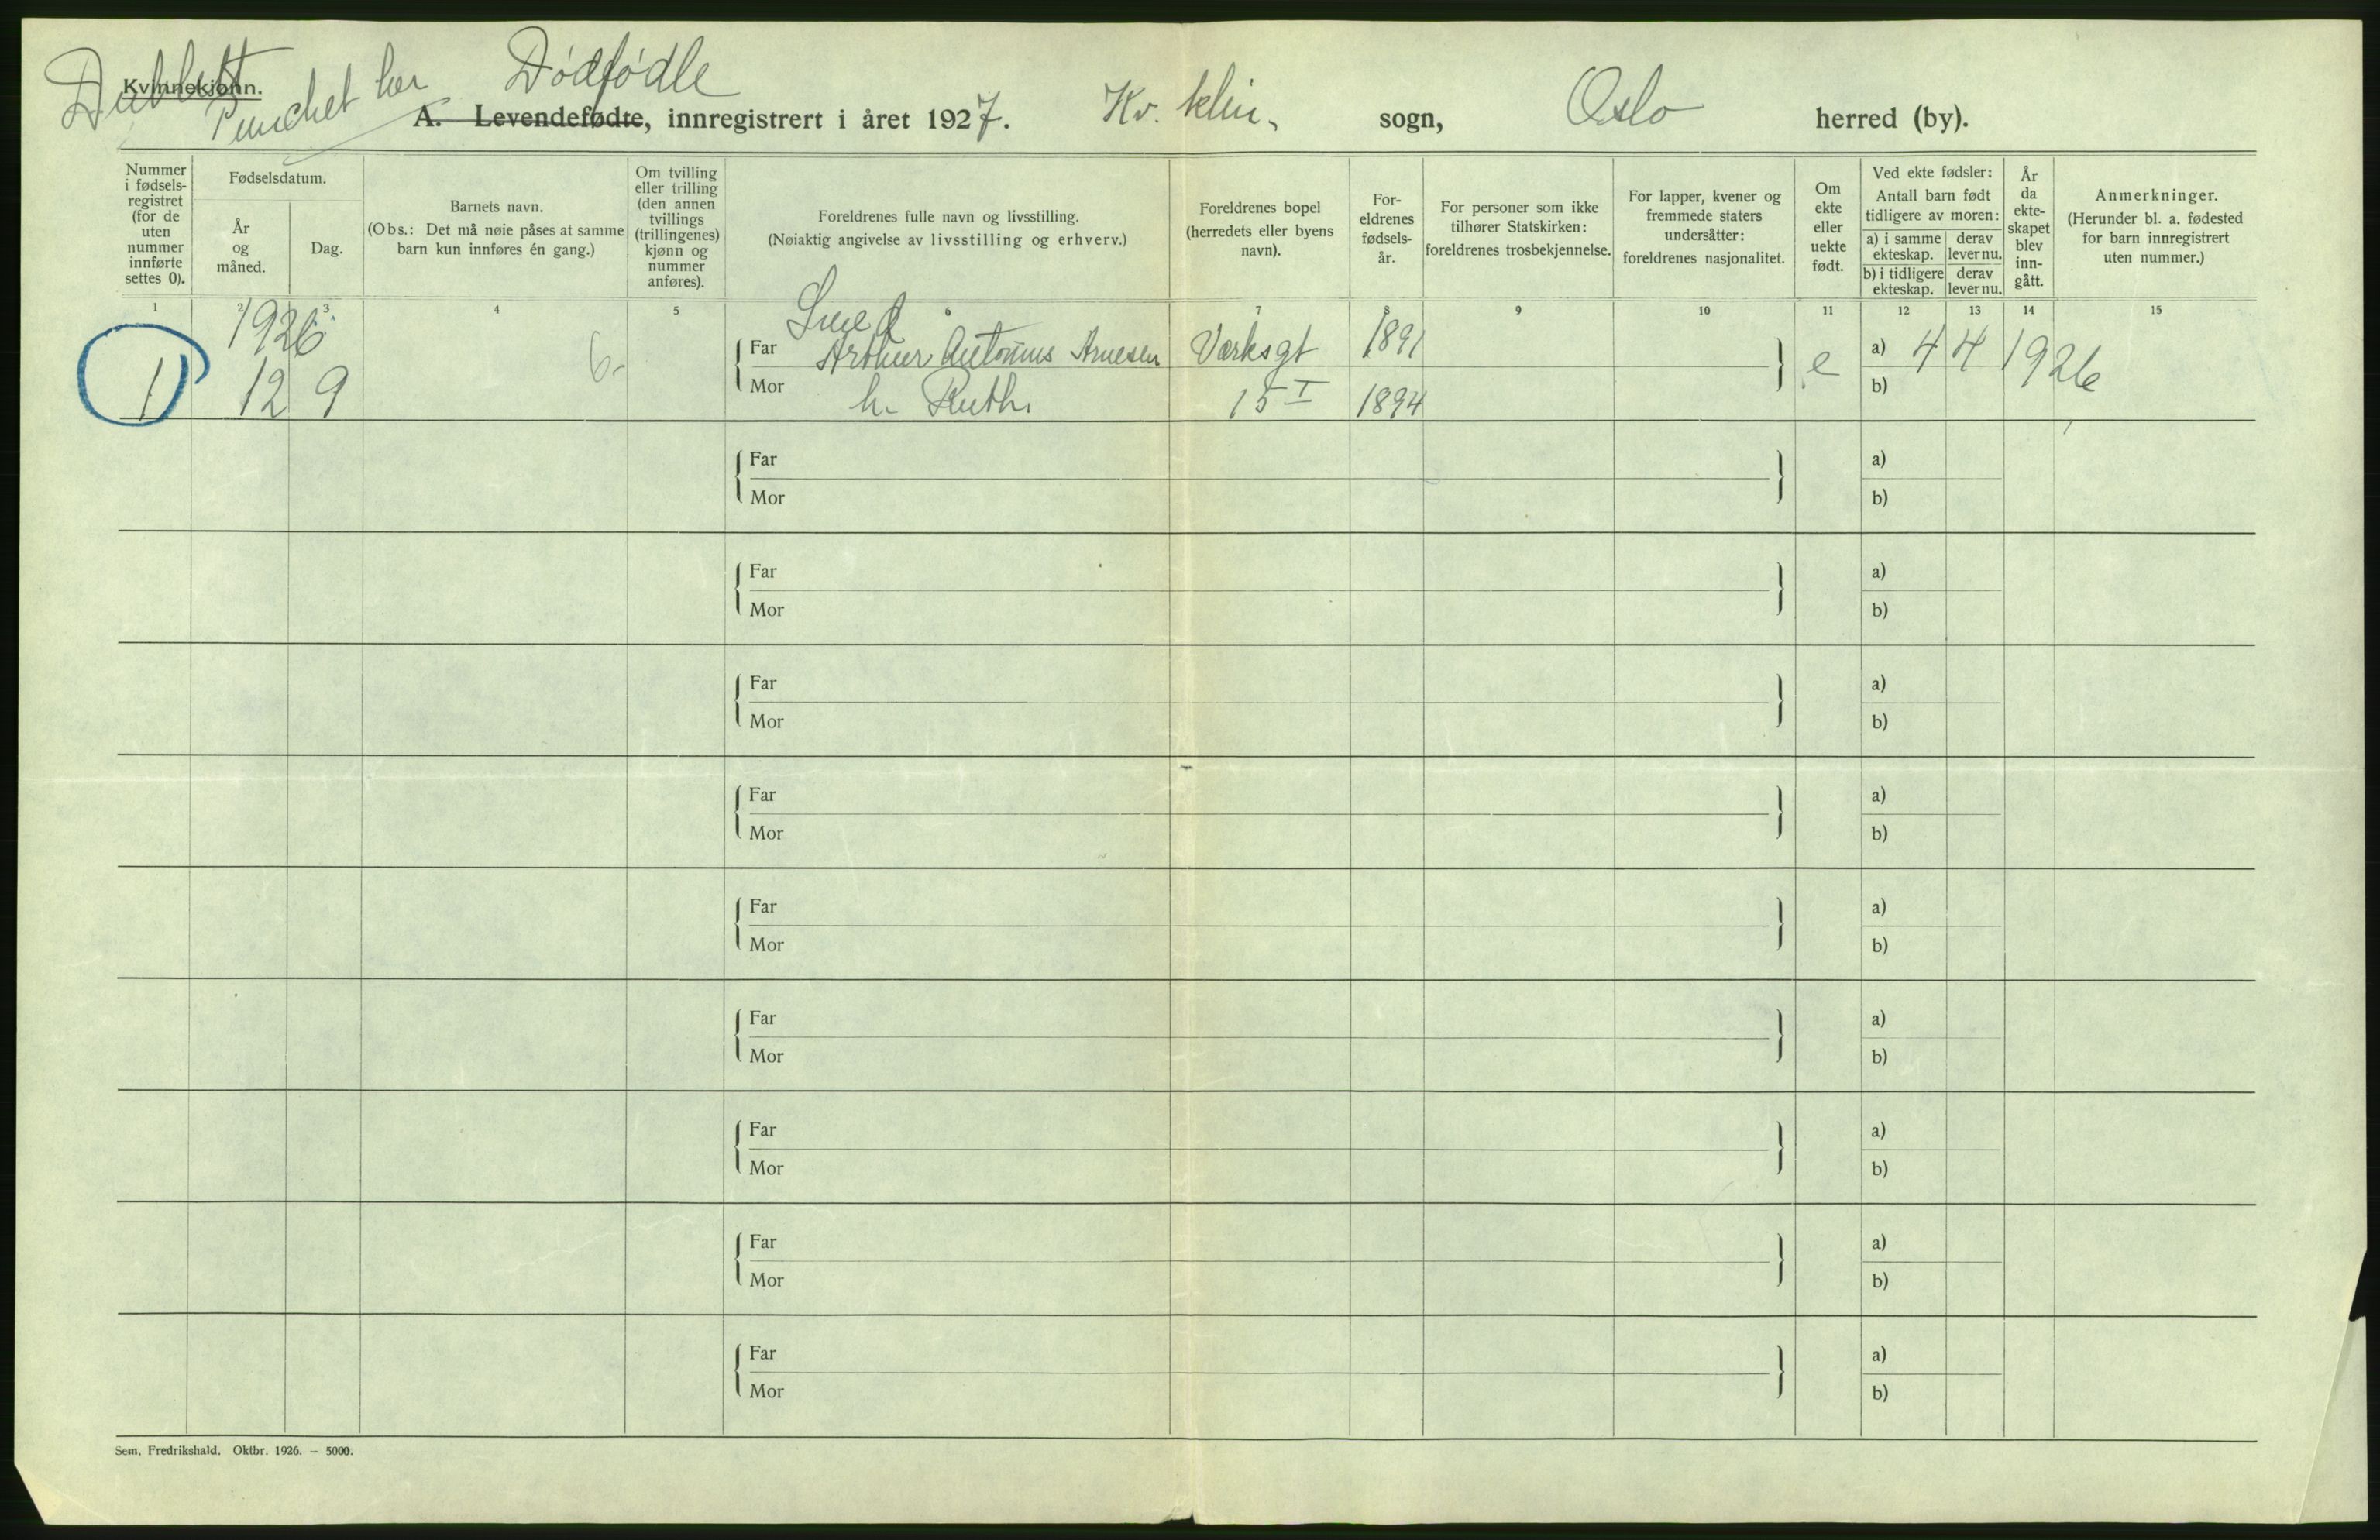 Dublett
Kvinnekjønn.
Punchet her
Dødfødte
A. Levendefødte, innregistrert i året 1927. Kv. klin. sogn, Oslo herred (by).
Nummer
i fødsels-
registret
(for de
uten
nummer
innførte
settes 0).
Fødselsdatum.
År
og
måned.
Dag.
Barnets navn.
(Obs.: Det må nøie påses at samme
barn kun innføres én gang.)
Om tvilling
eller trilling
(den annen
tvillings
(trillingenes)
kjønn og
nummer
anføres).
Foreldrenes fulle navn og livsstilling.
(Nøiaktig angivelse av livsstilling og erhverv.)
Foreldrenes bopel
(herredets eller byens
navn).
For-
eldrenes
fødsels-
år.
For personer som ikke
tilhører Statskirken:
foreldrenes trosbekjennelse.
For lapper, kvener og
fremmede staters
undersåtter:
foreldrenes nasjonalitet.
Om
ekte
eller
uekte
født.
Ved ekte fødsler:
Antall barn født
tidligere av moren:
a) i samme
ekteskap.
derav
lever nu.
b) i tidligere
ekteskap.
derav
lever nu.
År
da
ekte-
skapet
blev
inn-
gått.
Anmerkninger.
(Herunder bl. a. fødested
for barn innregistrert
uten nummer.)
1 2 3 4 5 6 7 8 9 10 11 12 13 14 15
1926
Smed
Far Arthur Antonius Arnesen Værksgt 1891 a) 4 4 1926
1 12 9 6. e
Mor h. Ruth. 15 I 1894 b)
Far a)
Mor b)
Far a)
Mor b)
Far a)
Mor b)
Far a)
Mor b)
Far a)
Mor b)
Far a)
Mor b)
Far a)
Mor b)
Far a)
Mor b)
Far a)
Mor b)
Sem, Fredrikshald. Oktbr. 1926. — 5000.